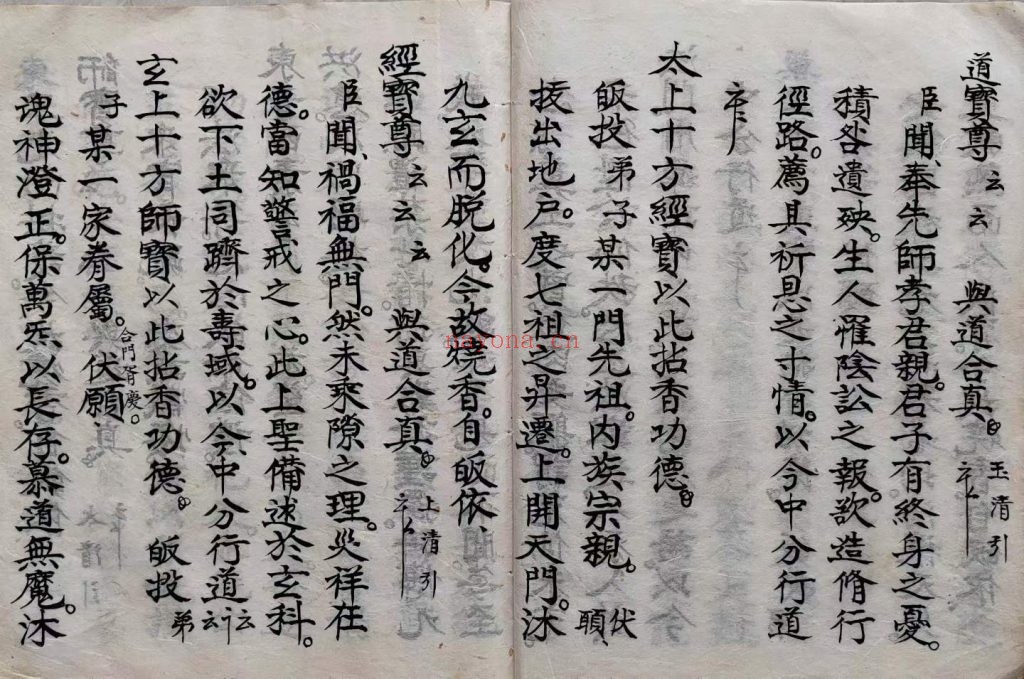 道寶尊云云 與道合真。玉清引
臣聞、奉先師孝君親。君子有終身之憂。
積咎遺殃。生人罹陰訟之報。欲造脩行
徑路。薦具祈恩之寸情。以今中分行道
太上十方經寶以此拈香功德。
皈投弟子某一門先祖。内族宗親。伏願、
拔出地户。度七祖之昇遷。上開天門。沐
九玄而脱化。今故燒香。自皈依、
經寶尊云云云 與道合真。上清引
臣聞、禍福無門。然未乘隙之理。災祥在
德。當知警戒之心。此上聖備述於玄科。
欲下土同躋於壽域。以今中分行道云云
玄上十方師寶以此拈香功德。皈投弟
子某一家眷屬。合門胥慶。伏願、
魂神澄正。保萬炁以長存。慕道無魔。沐
nayona.cn